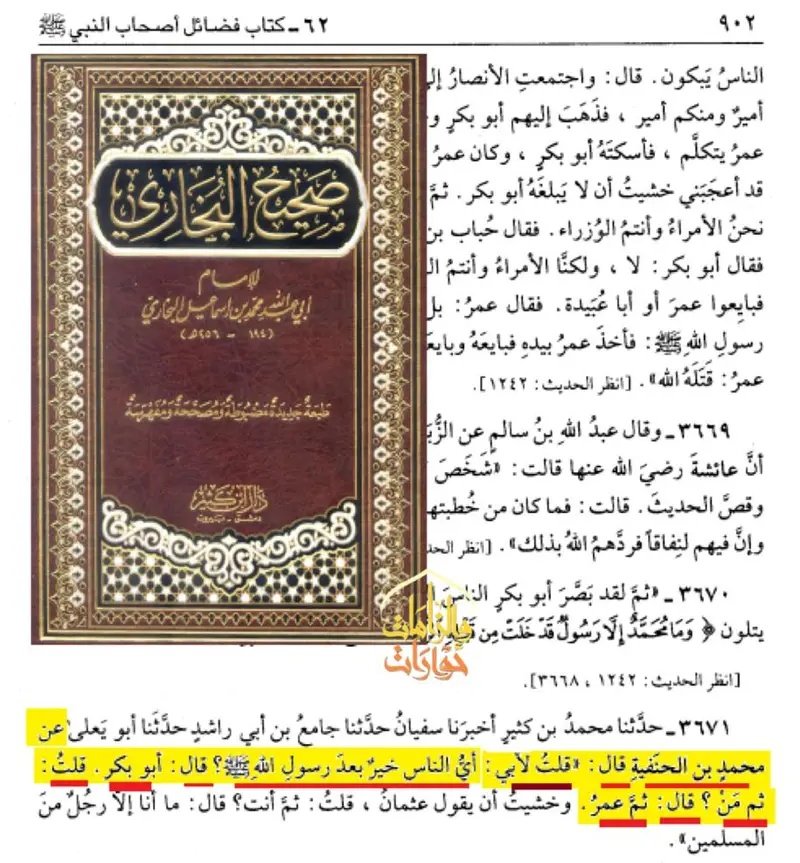 ٩٠٢
٦٢ - كتاب فضائل أصحاب النبي ﷺ
الناسُ يَبكون. قال: واجتمعتِ الأنصارُ
أميرٌ ومنكم أمير، فذَهَبَ إليهم أبو بكرٍ
عمرُ يتكلَّم، فأسكتَهُ أبو بكرٍ، وكان عمرُ
قد أعجَبَني خشيتُ أن لا يَبلغَهُ أبو بكر. ثمَّ
نحنُ الأمراءُ وأنتمُ الوُزراء. فقال حُباب بن
فقال أبو بكر: لا، ولكنَّا الأمراءُ وأنتمُ
فبايِعوا عمرَ أو أبا عُبَيدة. فقال عمرُ:
رسولِ اللهِ ﷺ: فأخذَ عمرُ بيدهِ فبايَعَهُ
عمرُ: قَتَلَهُ الله». [انظر الحديث: ١٢٤٢].
٣٦٦٩ - وقال عبدُ اللهِ بنُ سالمٍ عن
أنَّ عائشةَ رضيَ الله عنها قالت: «شَخَصَ
وقصَّ الحديثَ. قالت: فما كان من خُطبتهِ
وإنَّ فيهم لنِفاقاً فردَّهمُ اللهُ بذلك». [انظر
٣٦٧٠ - «ثمَّ لقد بَصَّرَ أبو بكرٍ الناسَ
يتلون ﴿وَمَا مُحَمَّدٌ إِلَّا رَسُولٌ قَدْ خَلَتْ مِن
[انظر الحديث: ١٢٤٢، ٣٦٦٨].
٣٦٧١ - حدَّثنا محمدُ بن كثيرٍ أخبرَنا سفيانُ حدَّثنا جامعُ بن أبي راشدٍ حدَّثَنا أبو يَعلى عن
محمدِ بن الحنَفيةِ قال: «قلتُ لأبي: أيُّ الناس خيرٌ بعدَ رسولِ اللهِ ﷺ؟ قال: أبو بكر. قلتُ:
ثم مَنْ؟ قال: ثمَّ عمرُ. وخشيتُ أن يقول عثمانُ، قلتُ: ثمَّ أنت؟ قال: ما أنا إلاَّ رجُلٌ منَ
المسلمين».
صَحِيحُ البُخَارِي
للإمام
أبي عبد الله محمد بن إسماعيل البخاري
(١٩٤ - ٢٥٦ه)
طبعة جديدة مضبوطة ومصححة ومفهرسة
دار ابن كثير
دمشق - بيروت